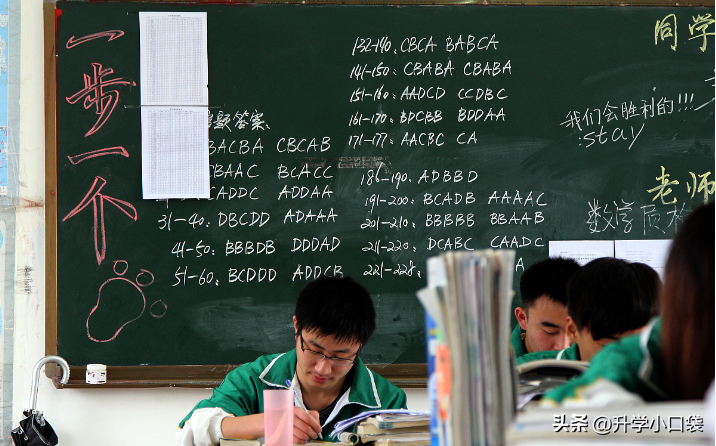 一步一个
答案:
BACBA CBCAB
CBAAC BCACC
CADDC ADDAA
31-40: DBCDD ADAAA
41-50: BBBDB DDDAD
51-60: BCDDD ADDCB
132-140: CBCA BABCA
141-150: CBABA CBABA
151-160: AADCD CCDBC
161-170: BDCBB BDDAA
171-177: AACBC CA
186-190: ADBBD
191-200: BCADB AAAAC
201-210: BBBBB BBAAB
211-220: DCABC CAADC
221-228:
同学
我们会胜利的!!!
:stay
老师
数学质检
头条 @升学小口袋